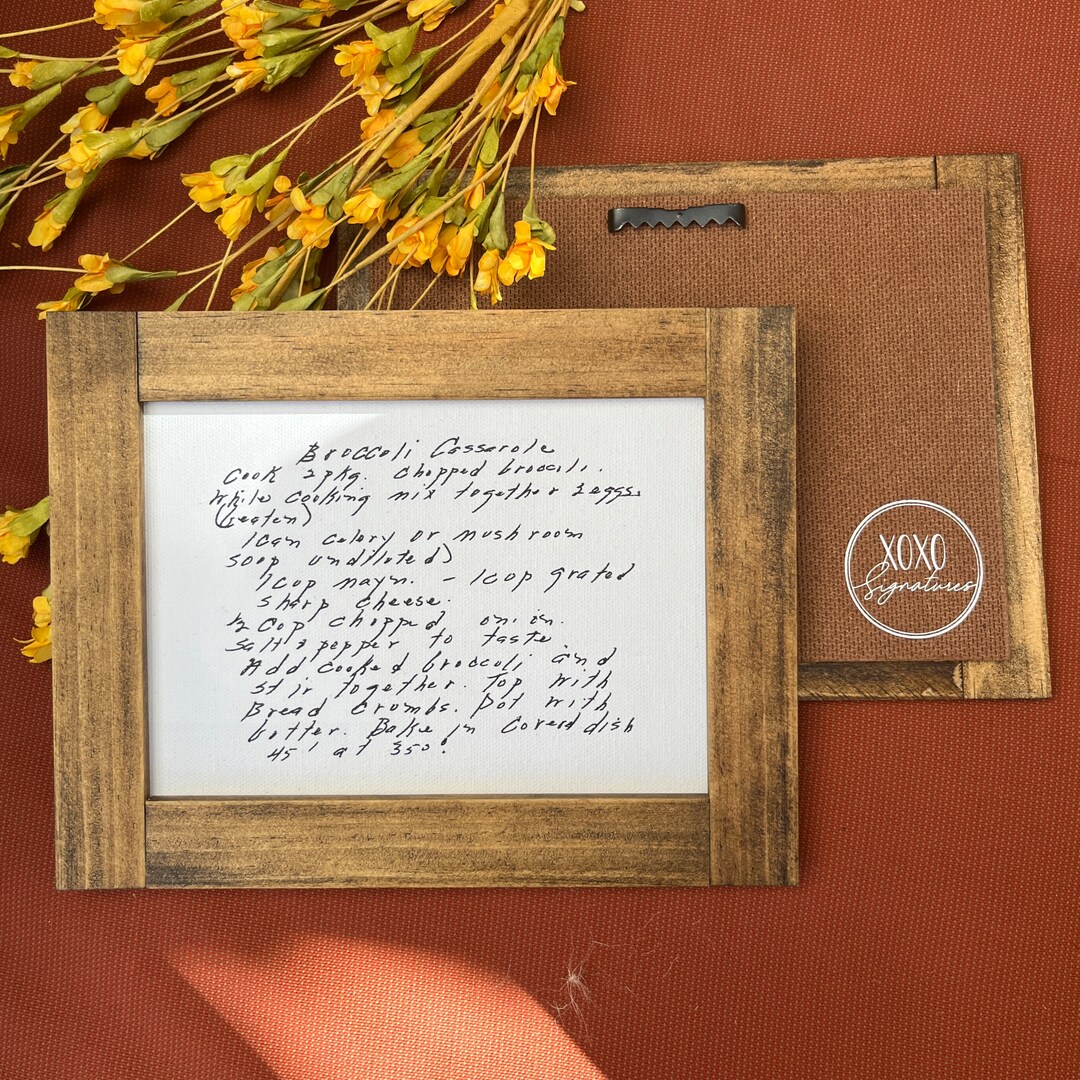 Broccoli Casserole
Cook 2 pkg. Chopped broccoli.
While cooking mix together 2 eggs
(beaten)
1 Can celery or mushroom
soup undiluted)
1 Cup mayn. - 1 Cup grated
sharp cheese.
½ Cup Chopped onion.
Salt & pepper to taste.
Add cooked broccoli and
stir together. Top with
Bread Crumbs. Dot with
butter. Bake in Coverd dish
45' at 350°
XOXO
Signatures